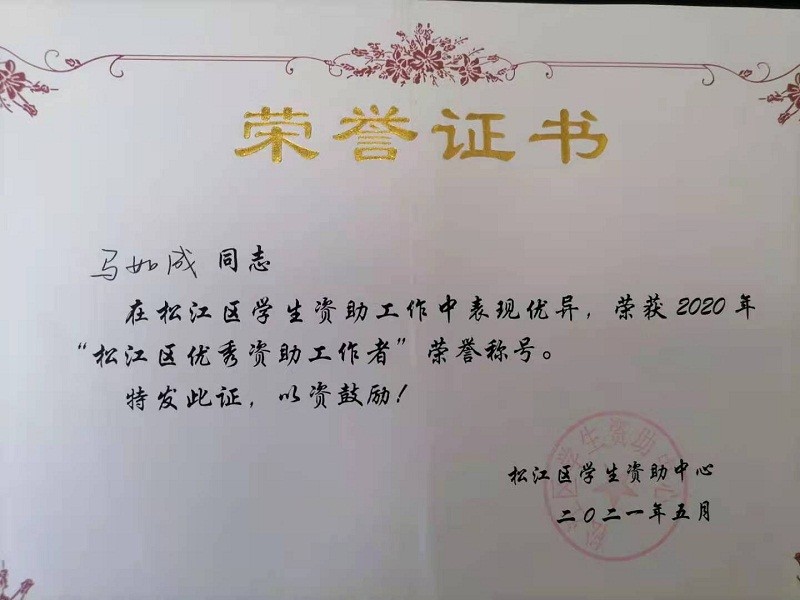 荣誉证书
马如成 同志
在松江区学生资助工作中表现优异，荣获2020年
“松江区优秀资助工作者”荣誉称号。
特发此证，以资鼓励！
松江区学生资助中心
二〇二一年五月
松江区学生资助中心